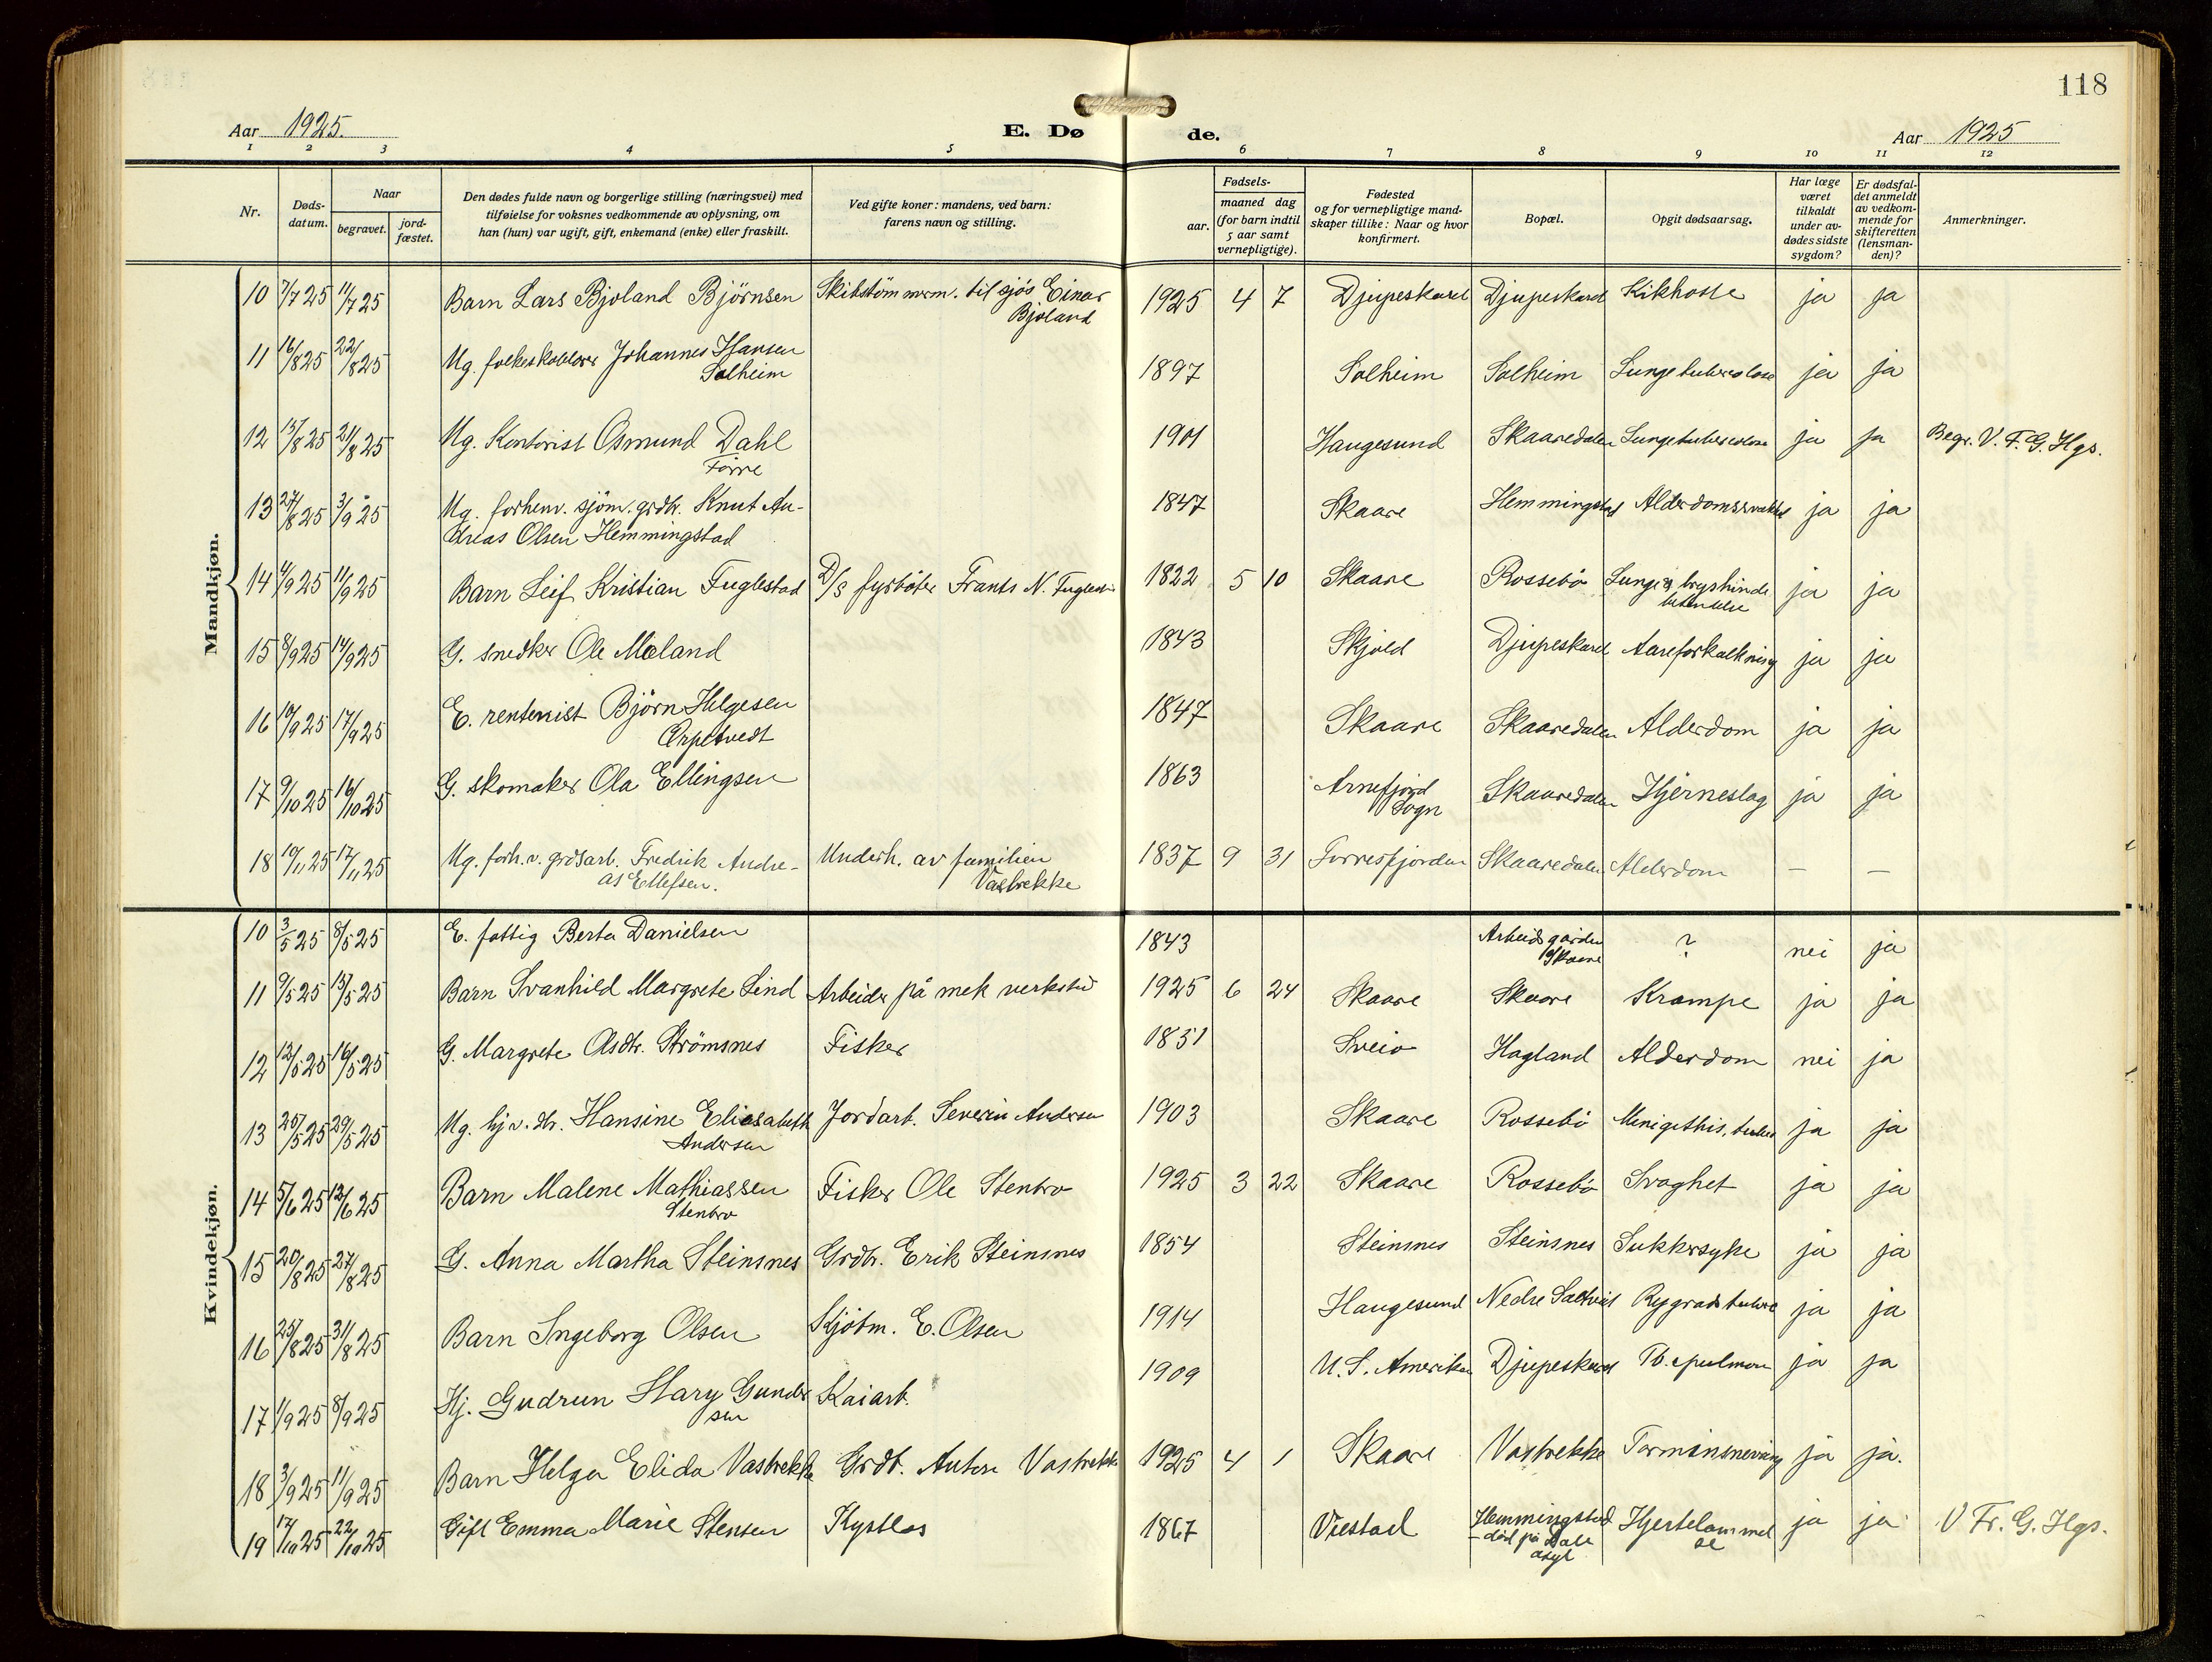 118
Aar 1925.
E. Døde.
Aar 1925
1 2 3 4 5 6 7 8 9 10 11 12
Nr.
Døds-datum.
Naar
begravet.
jord-fæstet.
Den dødes fulde navn og borgerlige stilling (næringsvei) med
tilføielse for voksnes vedkommende av oplysning, om
han (hun) var ugift, gift, enkemand (enke) eller fraskilt.
Ved gifte koner: mandens, ved barn:
farens navn og stilling.
Fødsels-
aar.
maaned dag
(for barn indtil
5 aar samt
vernepligtige).
Fødested
og for vernepligtige mand-
skaper tillike: Naar og hvor
konfirmert.
Bopæl.
Opgit dødsaarsag.
Har læge
været
tilkaldt
under av-
dødes sidste
sygdom?
Er dødsfal-
det anmeldt
av vedkom-
mende for
skifteretten
(lensman-
den)?
Anmerkninger.
Mandkjøn.
10 7/7 25 11/7 25 Barn Lars Bjoland Björnsen Skibstömmerm. til sjös Einar 1925 4 7 Djupeskard Djupeskard Kikhoste ja ja
Bjoland
11 16/8 25 22/8 25 Ug. folkeskolelærer Johannes Hansen 1897 Solheim Solheim Lungetuberculose ja ja
Solheim
12 15/8 25 21/8 25 Ug. Kontorist Osmund Dahl 1901 Haugesund Skaaredalen Lungetuberculose ja ja Begr. V. F. G. Hgs.
Förre
13 27/8 25 3/9 25 Ug. forhenv. sjöm. grdbr. Knut An- 1847 Skaare Hemmingstad Alderdomssvakhet ja ja
dreas Olsen Hemmingstad
14 4/9 25 11/9 25 Barn Leif Kristian Fuglestad D/S fyrböter Frants N. Fuglestad 1822 5 10 Skaare Rossebö Lunge & brysthinde ja ja
betendelse
15 8/9 25 14/9 25 G. snedker Ole Moland 1843 Skjold Djupeskard Aareforkalkning ja ja
16 10/9 25 17/9 25 E. rentenist Björn Helgesen 1847 Skaare Skaaredalen Alderdom ja ja
Orpetvedt
17 9/10 25 16/10 25 G. skomaker Ola Ellingsen 1863 Arnefjord Skaaredalen Hjerneslag ja ja
Sogn
18 10/11 25 17/11 25 Ug. forh.v. grdsarb. Fredrik Andre- Underh. av familien 1837 9 31 Förresfjorden Skaaredalen Alderdom — —
as Ellefsen. Vasbrekke
Kvindekjøn.
10 3/5 25 8/5 25 E. fattig Berta Danielsen 1843 Arbeidsgården ? nei ja
Skaare
11 9/5 25 13/5 25 Barn Svanhild Margrete Lind Arbeider på mek verksted 1925 6 24 Skaare Skaare Krampe ja ja
12 12/5 25 16/5 25 G. Margrete Olsdtr. Strömsnes Fisker 1851 Sveio Hagland Alderdom nei ja
13 25/5 25 29/5 25 Ug. hj.v. dtr. Hansine Eliesabeth Jordarb. Severin Andersen 1903 Skaare Rossebö Menigithis, tuber ja ja
Andersen
14 5/6 25 12/6 25 Barn Malene Mathiassen Fisker Ole Stenbro 1925 3 22 Skaare Rossebö Svaghet ja ja
Stenbro
15 20/8 25 27/8 25 G. Anna Martha Steinsnes Grdbr. Erik Steinsnes 1854 Steinsnes Steinsnes Sukkersyke ja ja
16 25/8 25 31/8 25 Barn Ingeborg Olsen Skjötm. E. Olsen 1914 Haugesund Nedre Saltveit Rygradstuberc ja ja
17 1/9 25 8/9 25 Hj. Gudrun Mary Gunder Kaiarb. 1909 U.S. Amerika Djupeskard Tb. pulmon ja ja
sen
18 3/9 25 11/9 25 Barn Helga Elida Vasbrekke Grdb. Anton Vasbrekke 1925 4 1 Skaare Vasbrekke Tarminsnevring ja ja.
19 17/10 25 22/10 25 Gift Emma Marie Stensen Kystlos 1867 Viestad Hemmingstad Hjertelammel ja ja V Fr. G. Hgs.
- död på Dale se
asyl